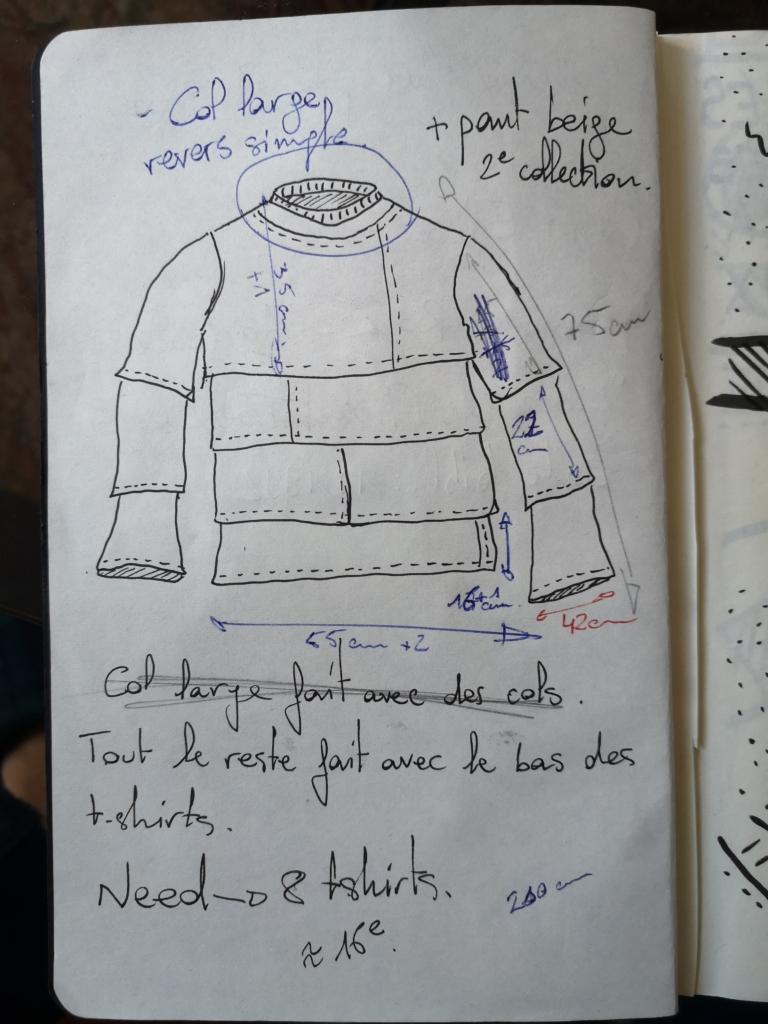 - Col large,
revers simple.
+ pant beige
2e collection.
35 cm
+1
75 cm
22
cm
16+1
cm
42cm
65 cm +2
Col large fait avec des cols.
Tout le reste fait avec le bas des
t-shirts.
Need → 8 tshirts.
≈ 16e.
cm